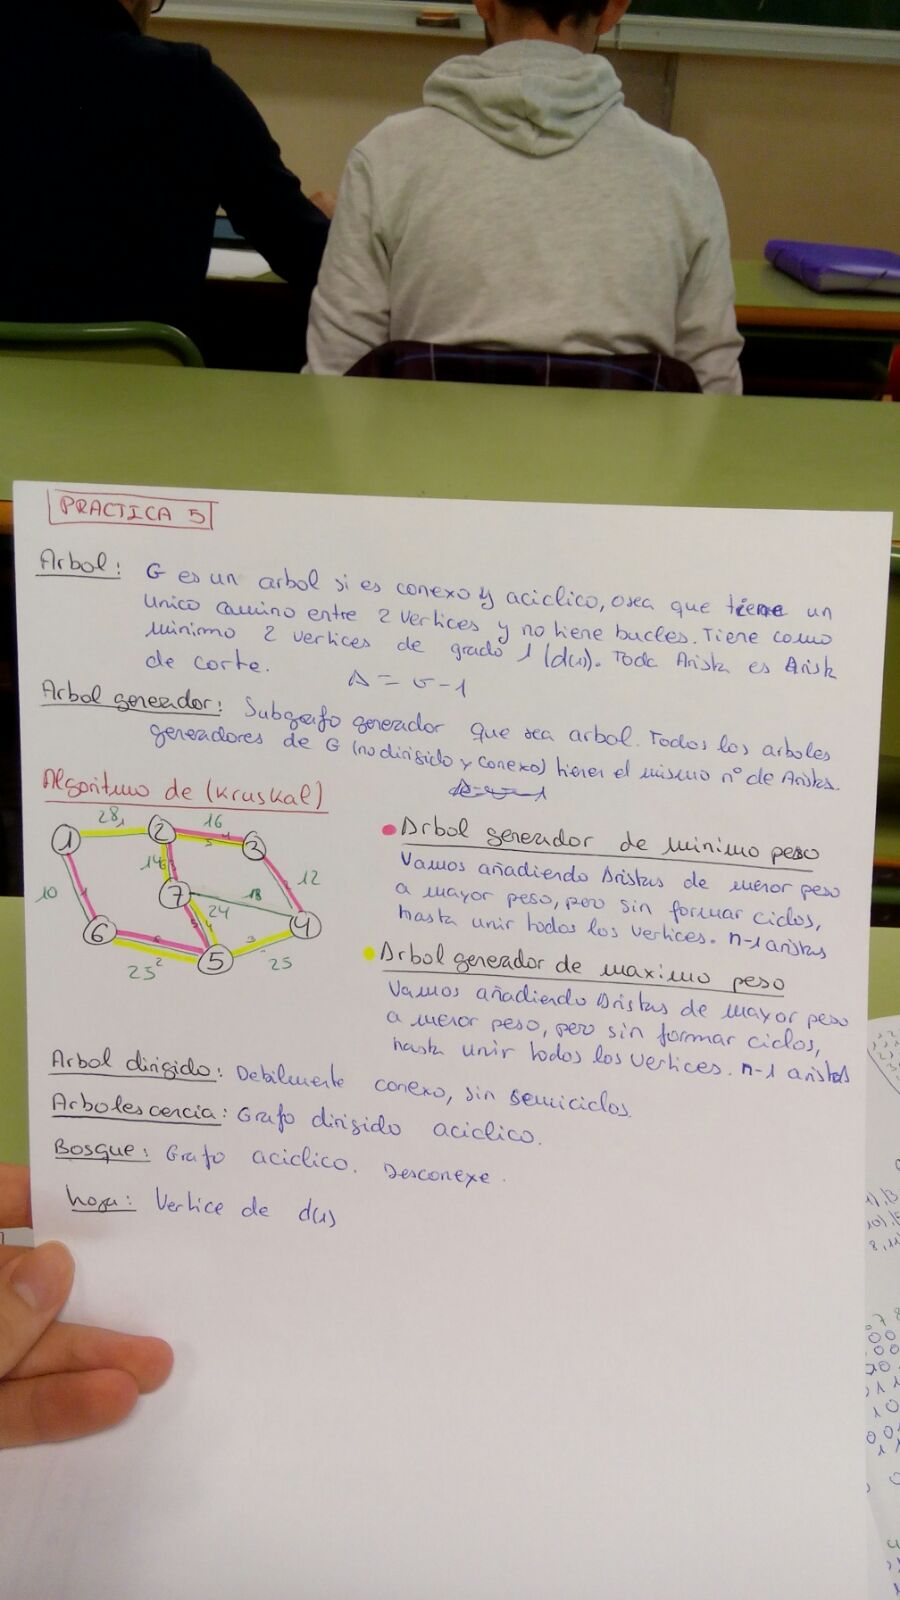 PRACTICA 5
Arbol: G es un arbol si es conexo y aciclico, osea que tiene un
unico camino entre 2 vertices y no tiene bucles. Tiene como
minimo 2 vertices de grado 1 (d(1)). Toda Arista es Arista
de corte.
A = v - 1
Arbol generador: Subgrafo generador que sea arbol. Todos los arboles
generadores de G (no dirigido y conexo) tienen el mismo nº de Aristas.
Algoritmo de (Kruskal)
28 1 16
1 2 5 4 3
14 6 3
10 1 7 18 2 12
24
6 6 5 4 3 4
25 2 5 25
• Arbol generador de minimo peso
Vamos añadiendo Aristas de menor peso
a mayor peso, pero sin formar ciclos,
hasta unir todos los vertices. n-1 aristas
• Arbol generador de maximo peso
Vamos añadiendo Aristas de mayor peso
a menor peso, pero sin formar ciclos,
hasta unir todos los vertices. n-1 aristas
Arbol dirigido: Debilmente conexo, sin semiciclos.
Arbolescencia: Grafo dirigido aciclico.
Bosque: Grafo aciclico. Desconexo.
hoja: Vertice de d(1)